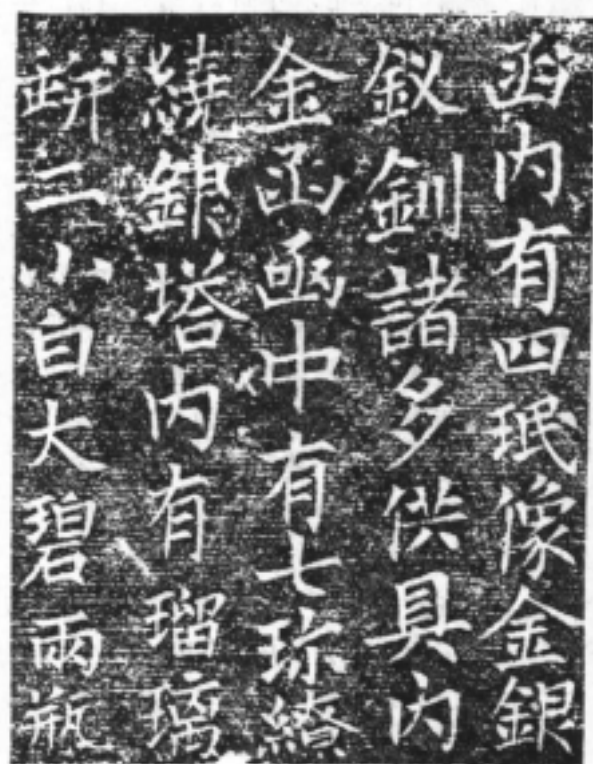 函内有四珉像金銀
釵釧諸多供具内
金函函中有七珎繚
繞銀塔内有瑠璃
缾二小白大碧兩瓶